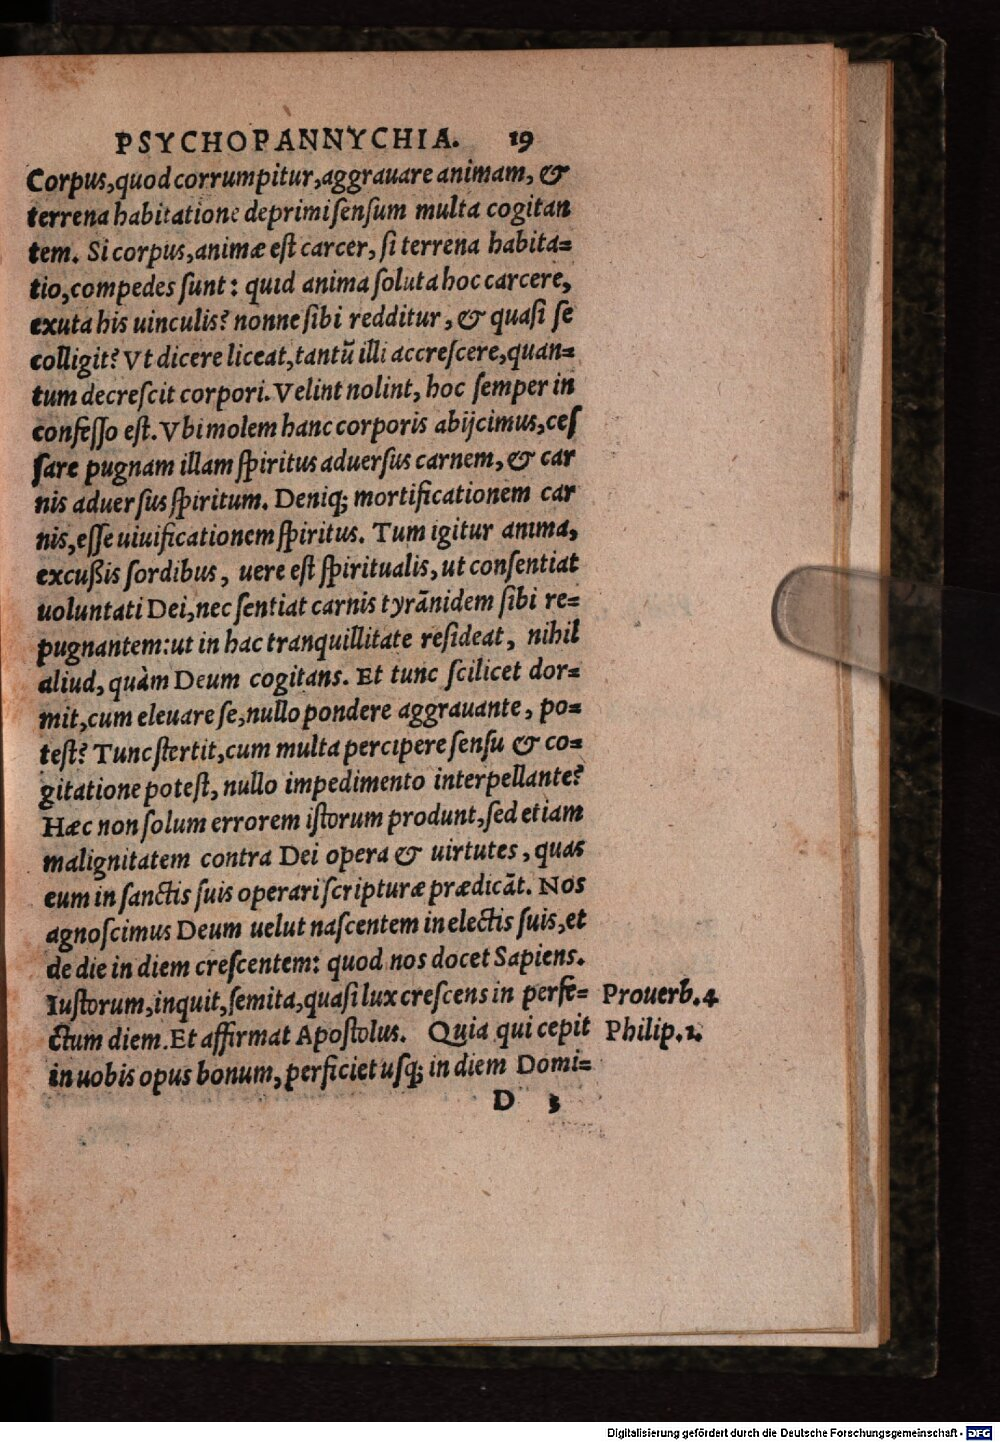 PSYCHOPANNYCHIA. 19
Corpus,quod corrumpitur,aggrauare animam, &
terrena habitatione deprimi ſenſum multa cogitan
tem. Si corpus,animæ eſt carcer, ſi terrena habita=
tio,compedes ſunt: quid anima ſoluta hoc carcere,
exuta his uinculis? nonne ſibi redditur, & quaſi ſe
colligit? Vt dicere liceat,tantũ illi accreſcere,quan=
tum decreſcit corpori. Velint nolint, hoc ſemper in
confeſſo eſt. Vbi molem hanc corporis abijcimus,ceſ
ſare pugnam illam ſpiritus aduerſus carnem, & car
nis aduerſus ſpiritum. Deniq; mortificationem car
nis,eſſe uiuificationem ſpiritus. Tum igitur anima,
excußis ſordibus, uere eſt ſpiritualis, ut conſentiat
uoluntati Dei,nec ſentiat carnis tyrãnidem ſibi re=
pugnantem:ut in hac tranquillitate reſideat, nihil
aliud, quàm Deum cogitans. Et tunc ſcilicet dor=
mit,cum eleuare ſe,nullo pondere aggrauante, po=
teſt? Tunc ſtertit,cum multa percipere ſenſu & co=
gitatione poteſt, nullo impedimento interpellante?
Hæc non ſolum errorem iſtorum produnt,ſed etiam
malignitatem contra Dei opera & uirtutes, quas
eum in ſanctis ſuis operari ſcripturæ prædicãt. Nos
agnoſcimus Deum uelut naſcentem in electis ſuis,et
de die in diem creſcentem: quod nos docet Sapiens.
Iuſtorum,inquit,ſemita,quaſi lux creſcens in perfe= Prouerb.4
ctum diem. Et affirmat Apoſtolus. Quia qui cepit Philip.1.
in uobis opus bonum, perficiet uſq; in diem Domi=
D 3
Digitalisierung gefördert durch die Deutsche Forschungsgemeinschaft - DFG